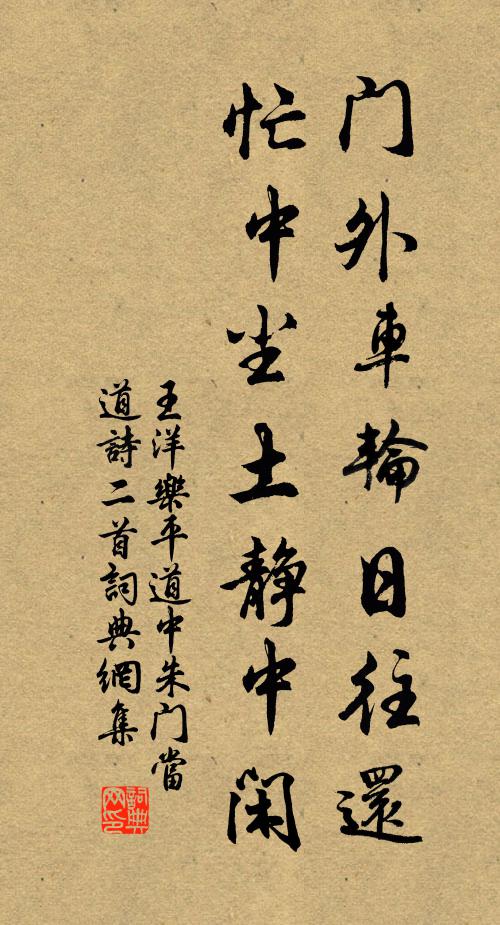 门外車輪日往還
忙中尘土静中闲
王洋樂平道中朱门當
道詩二首詞典網集
詞典网印